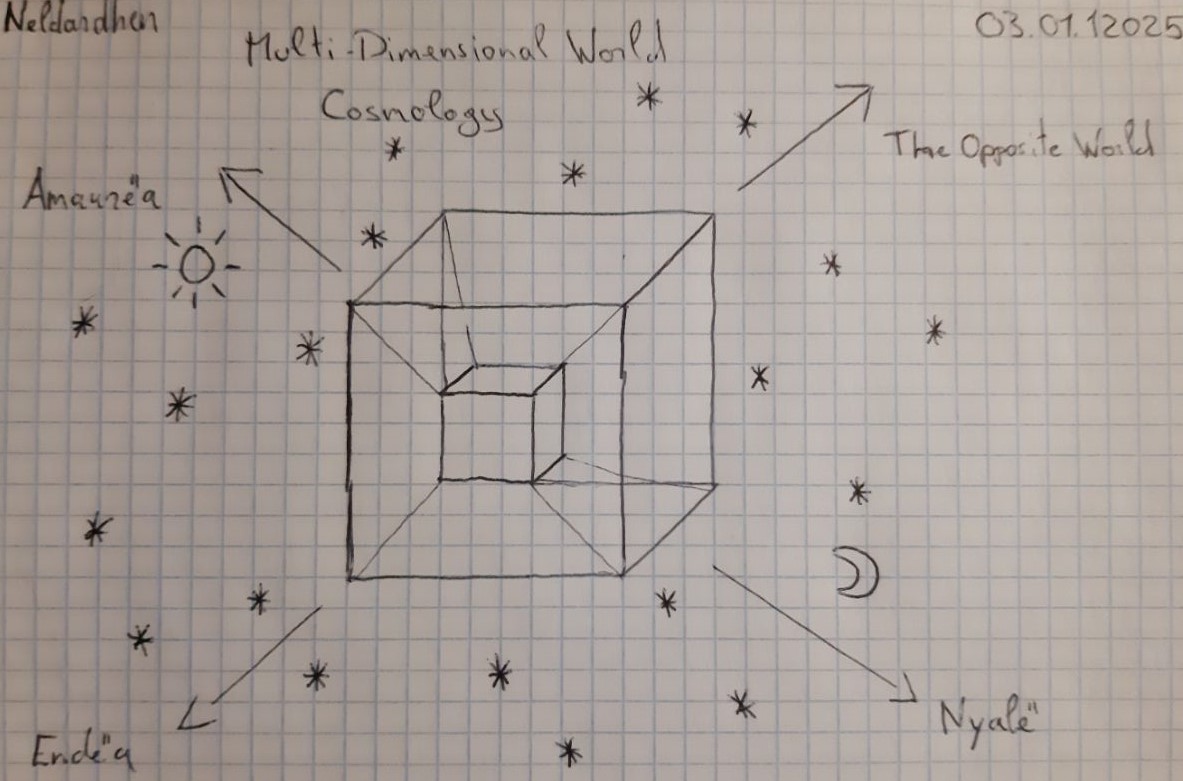 Neldardhen
03.01.12025
Multi-Dimensional World
Cosmology
The Opposite World
Amaurë"a
Endë"a
Nyalë"